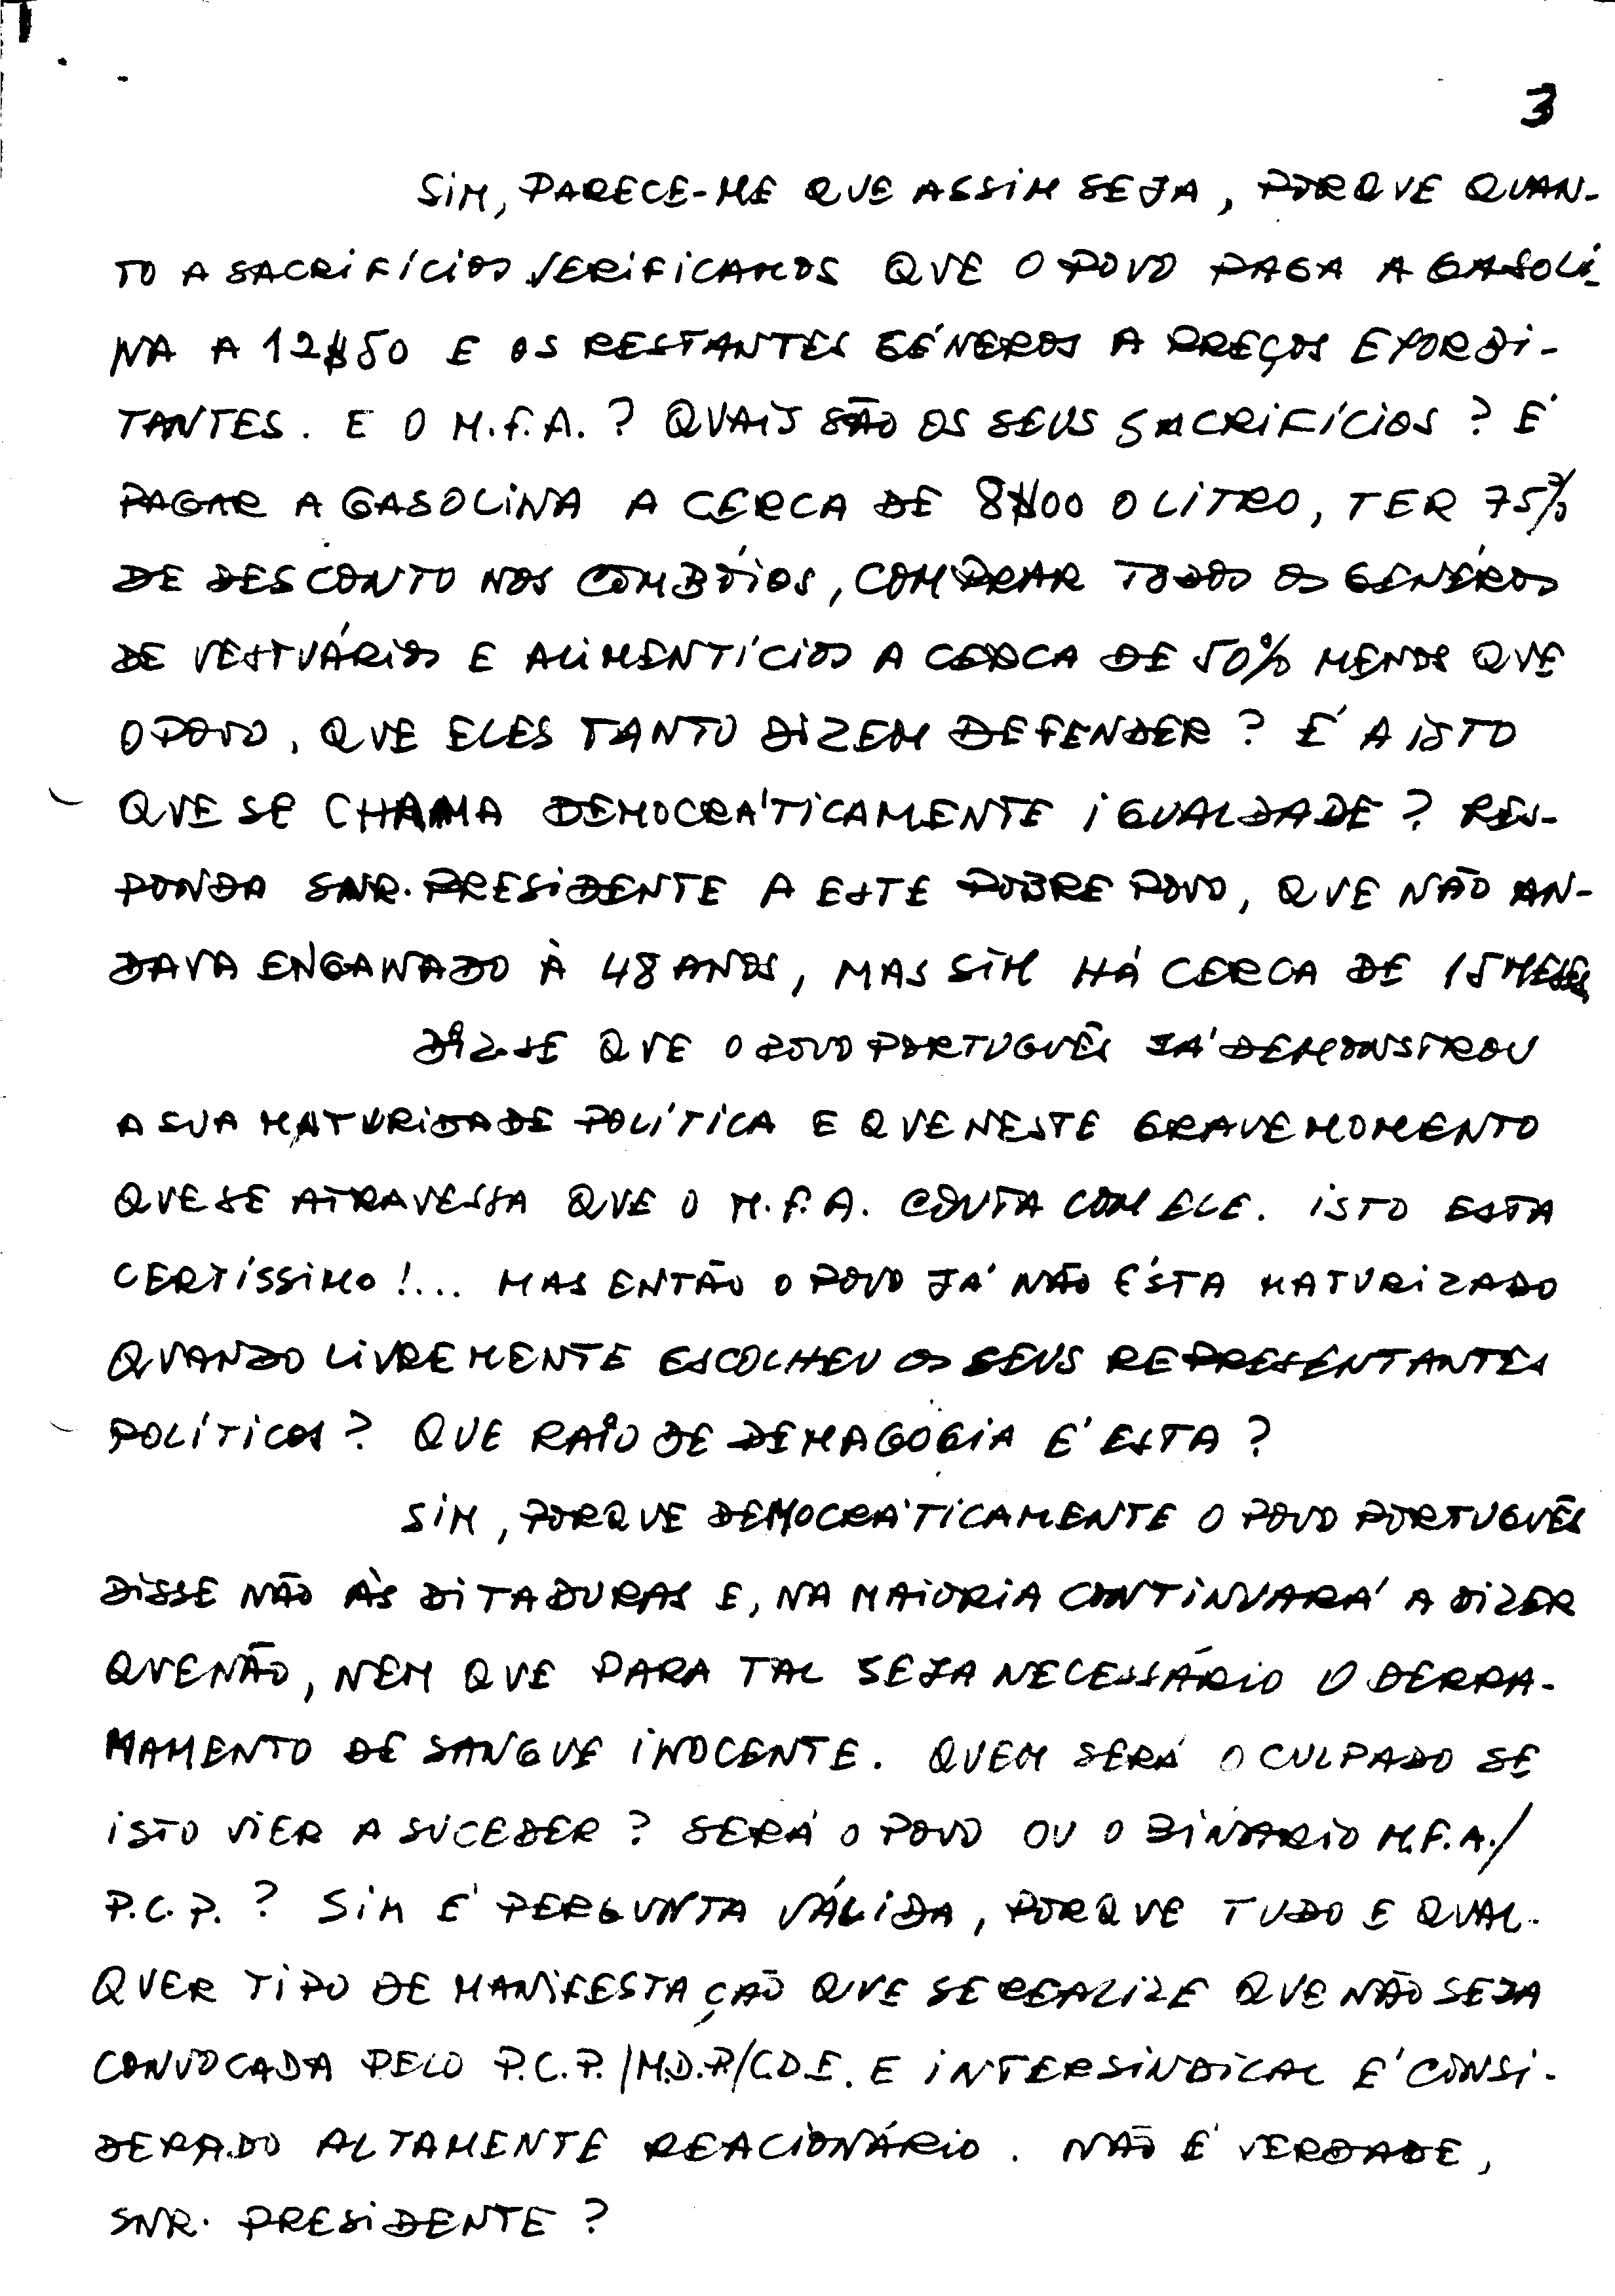 3
SIM, PARECE-ME QUE ASSIM SEJA, PORQUE QUAN-
TO A SACRIFÍCIOS VERIFICAMOS QUE O POVO PAGA A GASOLI-
NA A 12$50 E OS RESTANTES GÉNEROS A PREÇOS EXORBI-
TANTES. E O M.F.A.? QUAIS SÃO OS SEUS SACRIFÍCIOS? É
PAGAR A GASOLINA A CERCA DE 8$00 O LITRO, TER 75%
DE DESCONTO NOS COMBÓIOS, COMPRAR TODOS OS GENÉROS
DE VESTUÁRIOS E ALIMENTÍCIOS A CERCA DE 50% MENOS QUE
O POVO, QUE ELES TANTO DIZEM DEFENDER? É A ISTO
QUE SE CHAMA DEMOCRÁTICAMENTE IGUALDADE? RES-
PONDA SNR. PRESIDENTE A ESTE POBRE POVO, QUE NÃO AN-
DAVA ENGANADO À 48 ANOS, MAS SIM HÁ CERCA DE 15 MESES
DIZ-SE QUE O POVO PORTUGUÊS JÁ DEMONSTROU
A SUA MATURIDADE POLÍTICA E QUE NESTE GRAVE MOMENTO
QUE SE ATRAVESSA QUE O M.F.A. CONTA COM ELE. ISTO ESTA
CERTÍSSIMO!... MAS ENTÃO O POVO JÁ NÃO ÉSTA MATURIZADO
QUANDO LIVREMENTE ESCOLHEU OS SEUS REPRESENTANTES
POLÍTICOS? QUE RAIO DE DEMAGOGIA É ESTA?
SIM, PORQUE DEMOCRÁTICAMENTE O POVO PORTUGUÊS
DISSE NÃO ÀS DITADURAS E, NA MAIORIA CONTINUARÁ A DIZER
QUE NÃO, NEM QUE PARA TAL SEJA NECESSÁRIO O DERRA-
MAMENTO DE SANGUE INOCENTE. QUEM SERÁ O CULPADO SE
ISTO VIER A SUCEDER? SERÁ O POVO OU O BINÁRIO M.F.A./
P.C.P.? SIM É PERGUNTA VÁLIDA, PORQUE TUDO E QUAL-
QUER TIPO DE MANIFESTAÇÃO QUE SE REALIZE QUE NÃO SEJA
CONVOCADA PELO P.C.P./M.D.P/C.D.E. E INTERSINDICAL É CONSI-
DERADO ALTAMENTE REACIONÁRIO. NÃO É VERDADE,
SNR. PRESIDENTE?